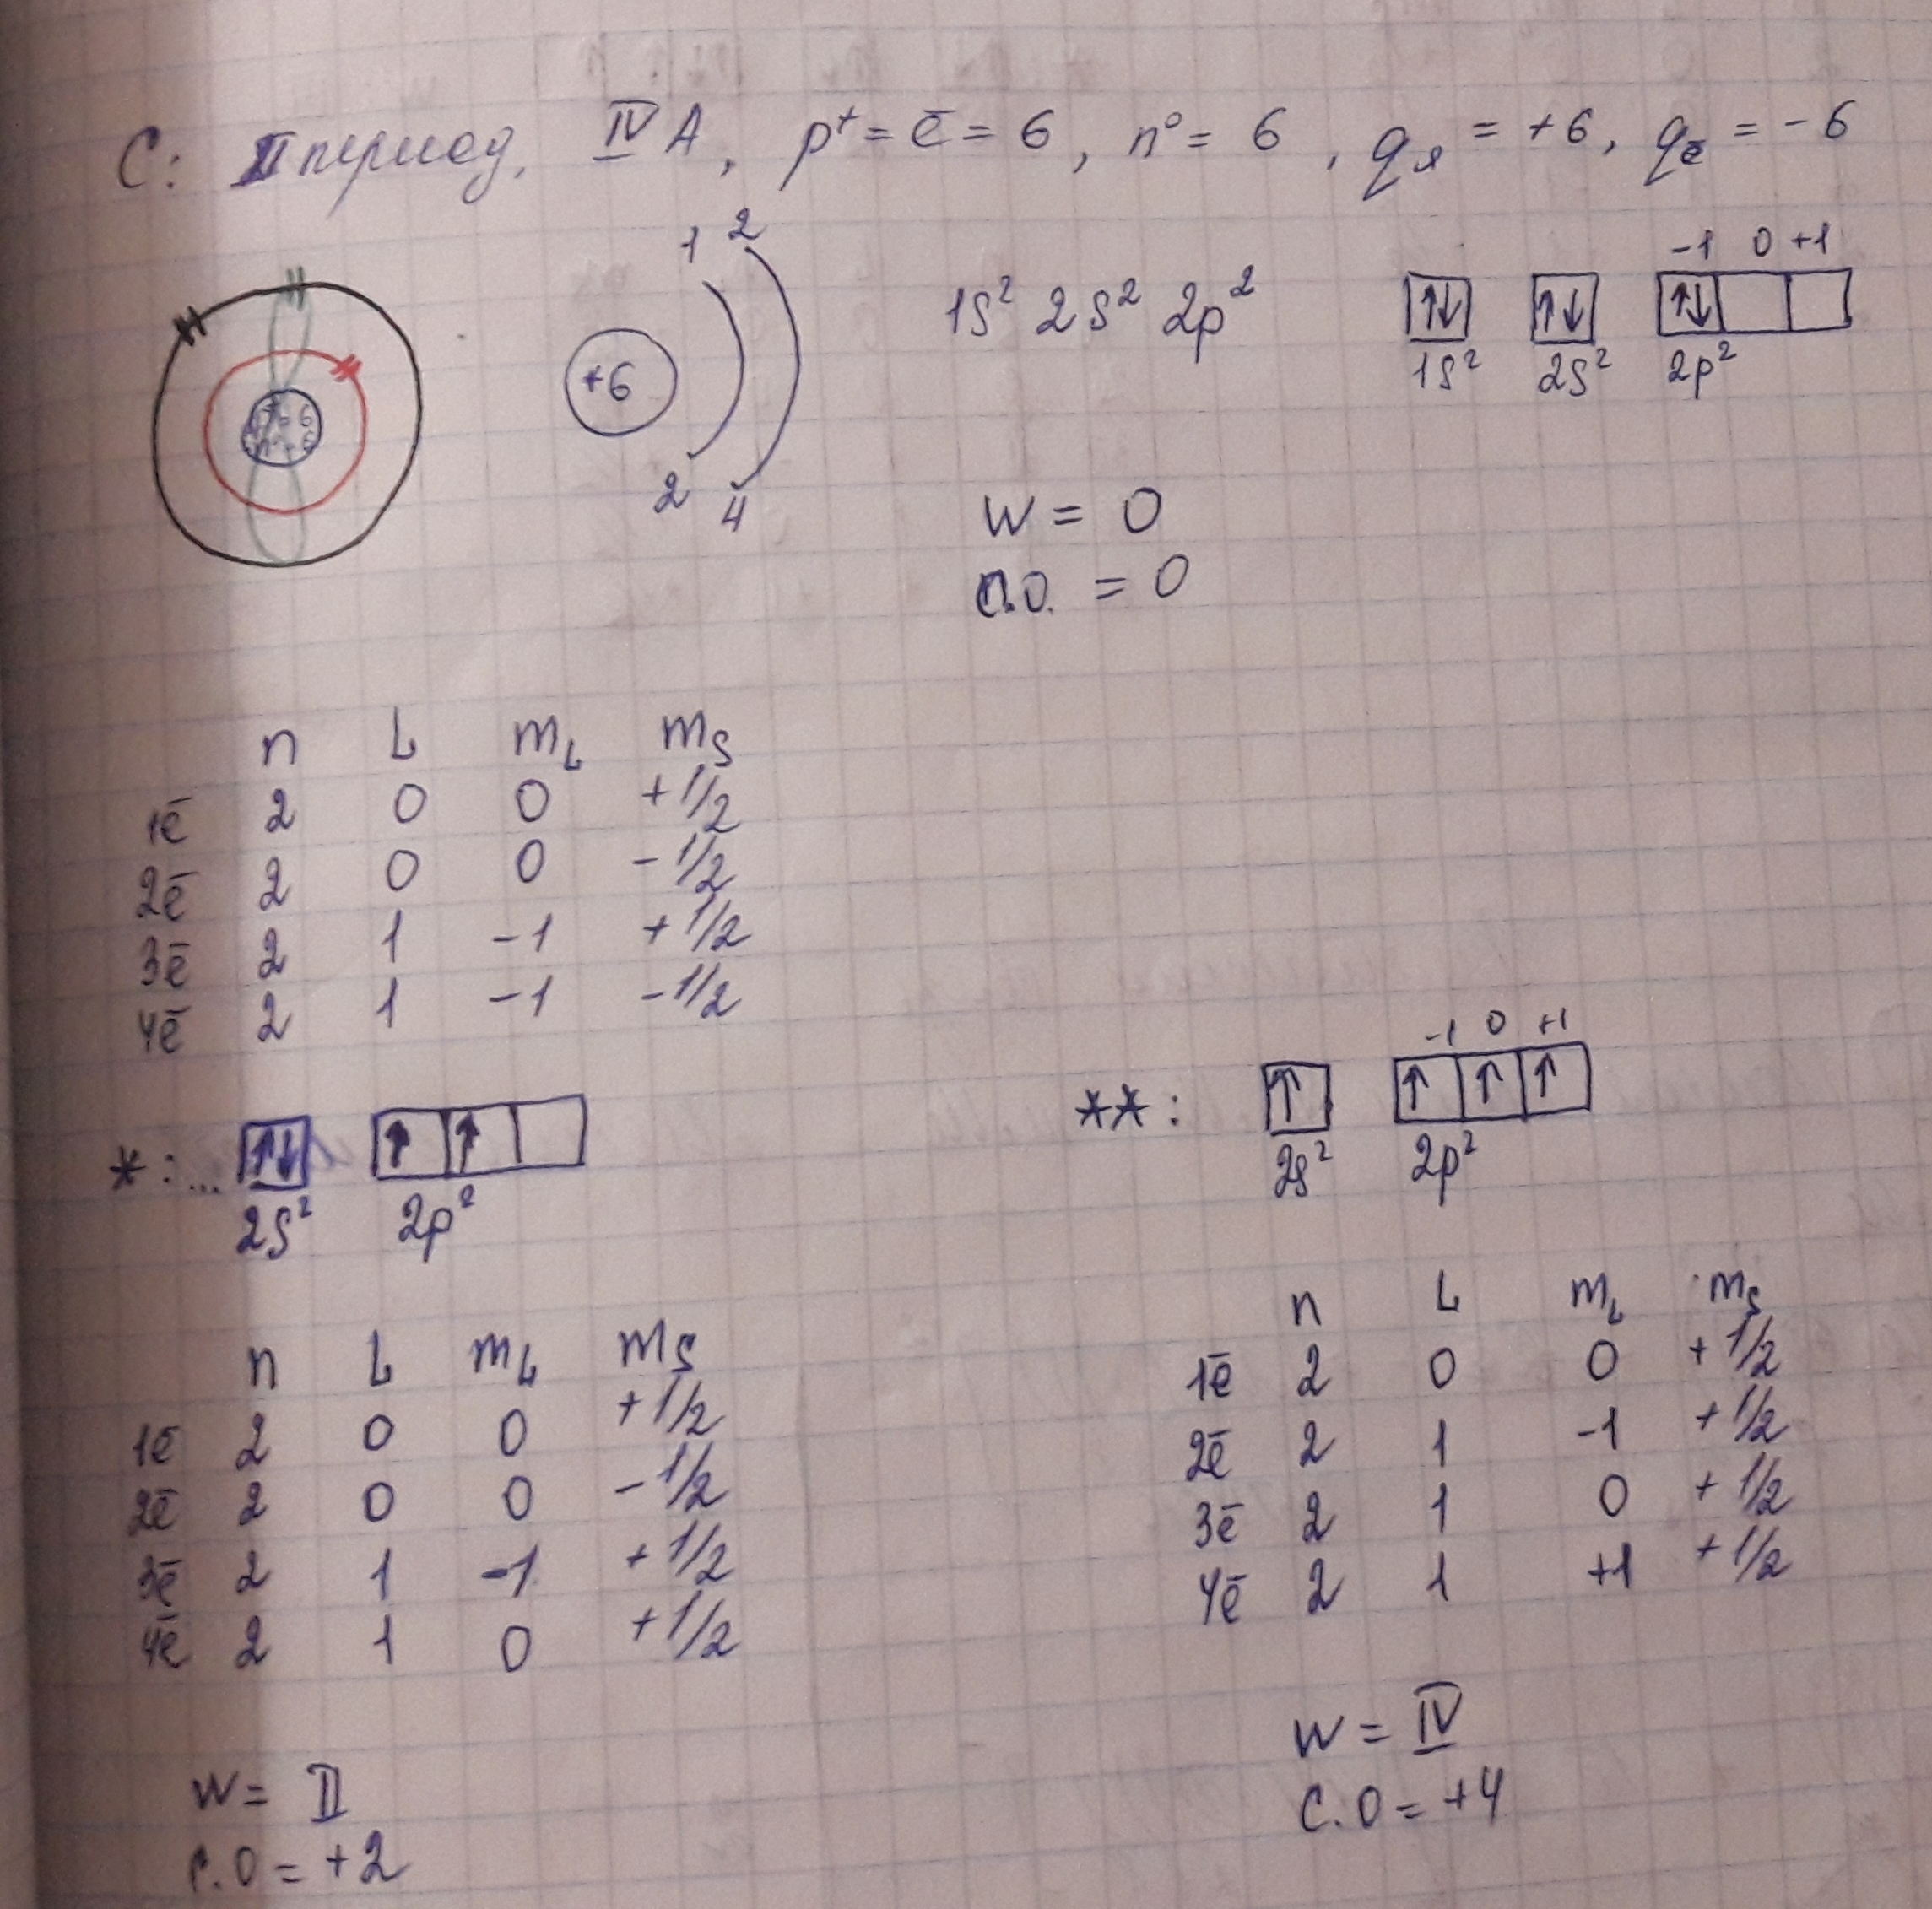 C: II период, IV A, p⁺ = ē = 6, n⁰ = 6, qя = +6, qē = -6
1 2
-1 0 +1
1s² 2s² 2p²
↑↓ ↑↓ ↑↓
+6
1s² 2s² 2p²
2 4
W = 0
с.о. = 0
n L mL mS
1ē 2 0 0 +1/2
2ē 2 0 0 -1/2
3ē 2 1 -1 +1/2
4ē 2 1 -1 -1/2
*: ... ↑↓ ↑ ↑
2s² 2p²
n L mL mS
1ē 2 0 0 +1/2
2ē 2 0 0 -1/2
3ē 2 1 -1 +1/2
4ē 2 1 0 +1/2
W = II
С.О = +2
-1 0 +1
**: ↑ ↑ ↑ ↑
2s² 2p²
n L mL mS
1ē 2 0 0 +1/2
2ē 2 1 -1 +1/2
3ē 2 1 0 +1/2
4ē 2 1 +1 +1/2
W = IV
С.О = +4